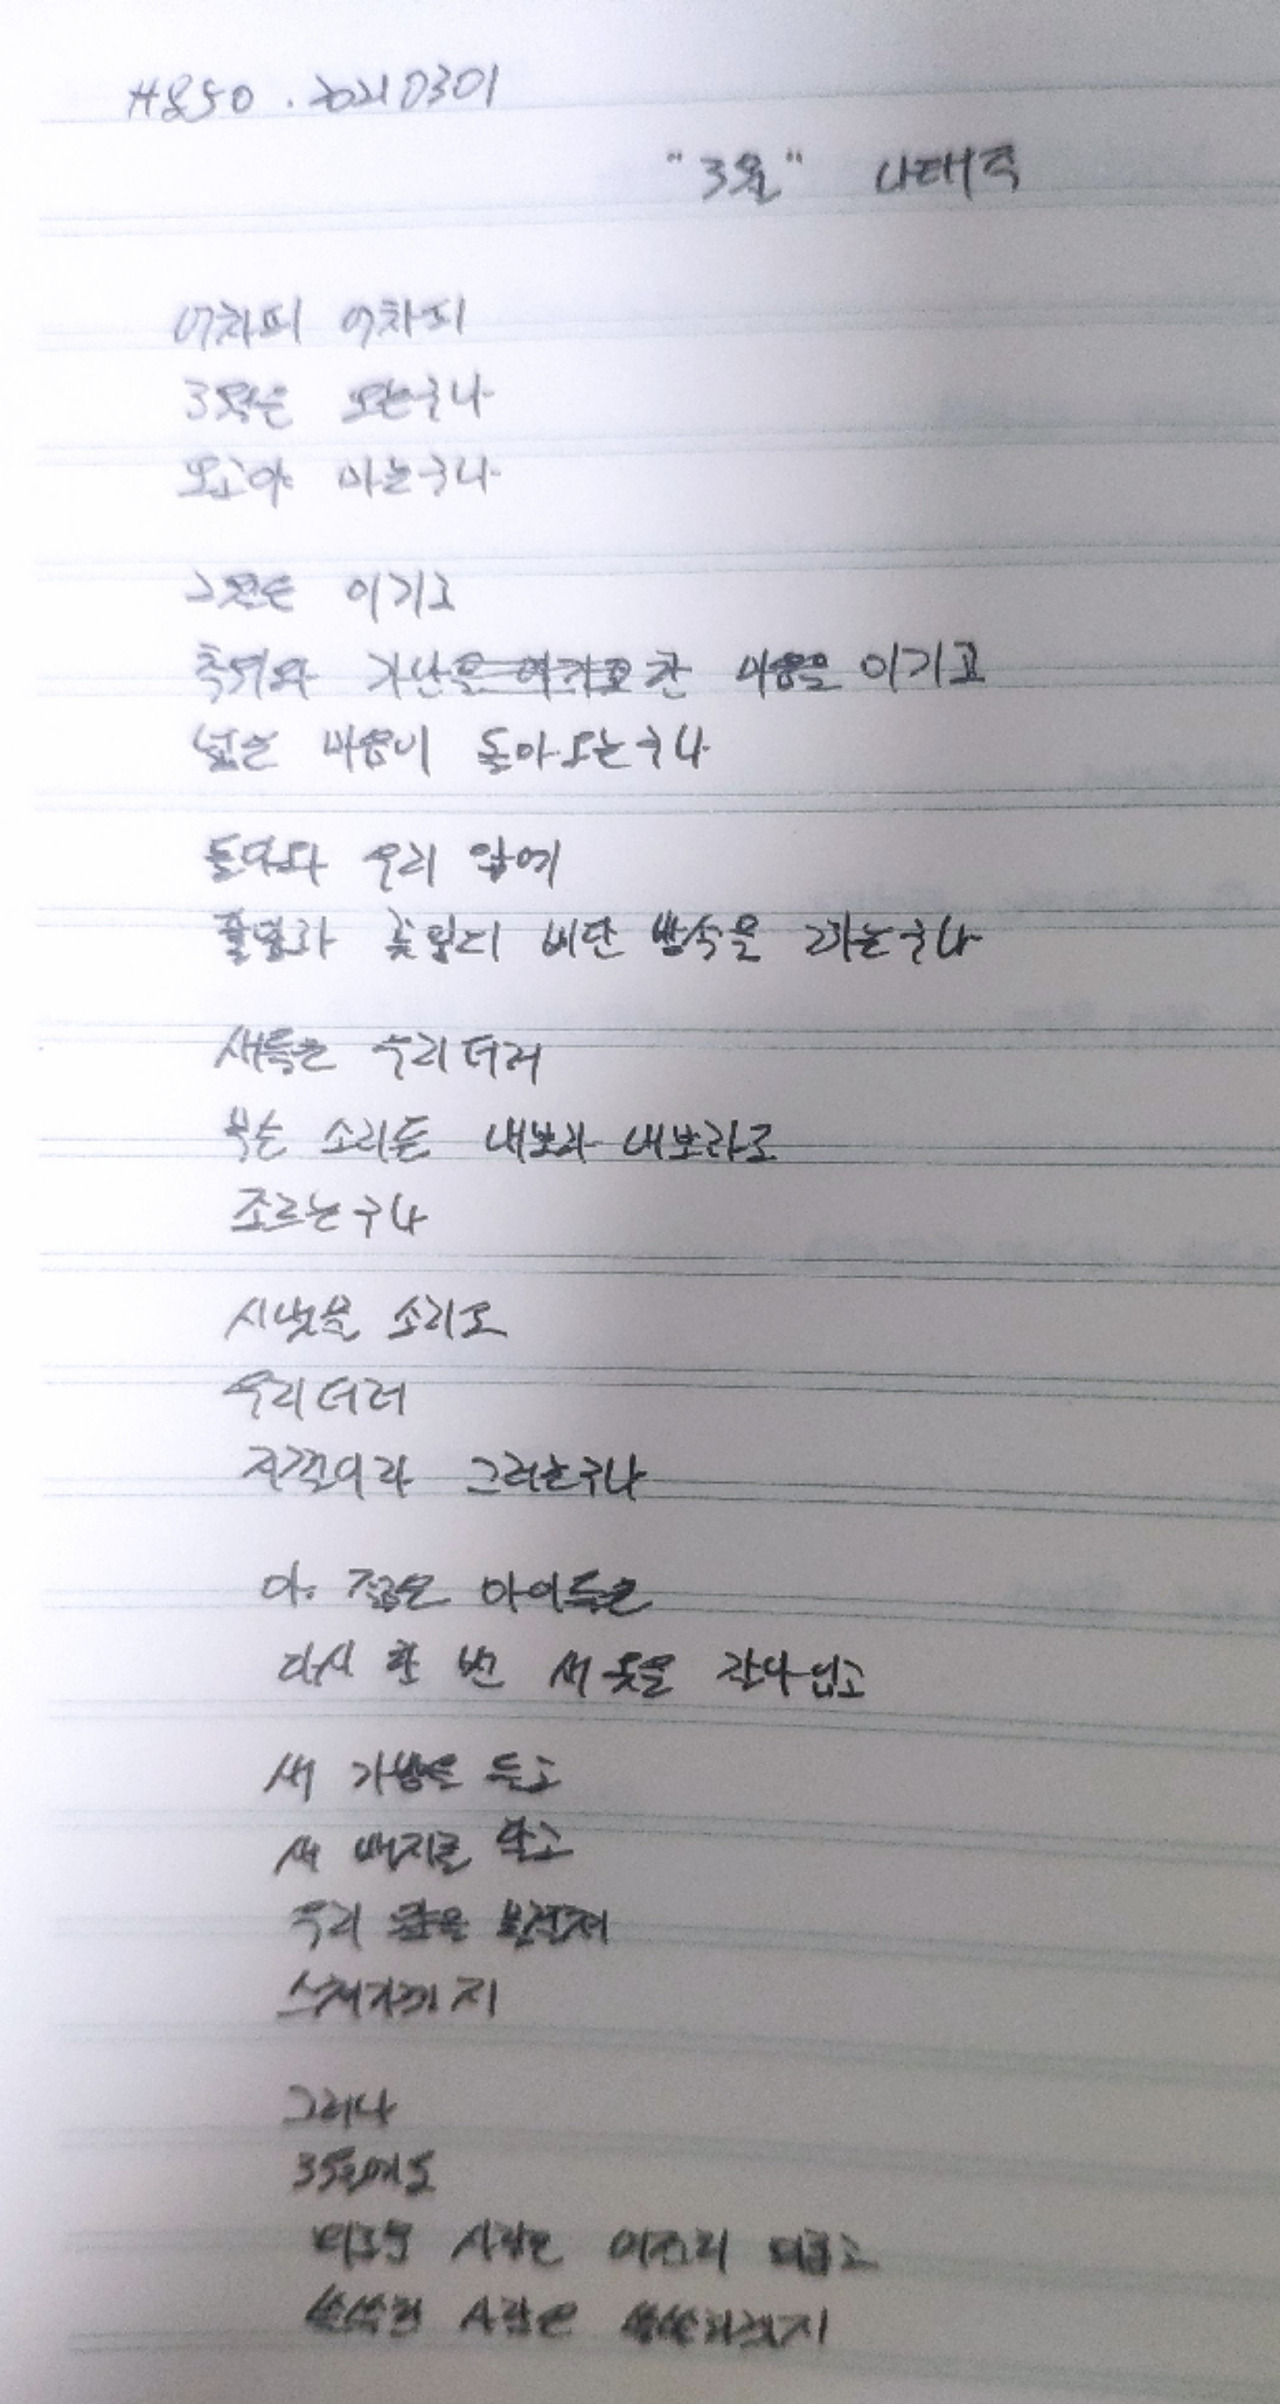 #850. 20210301
"3월" 나태주
어차피 어차피
3월은 오는구나
오고야 마는구나
2월을 이기고
추위와 가난한 마음을 이기고
넓은 마음이 돌아오는구나
돌아와 우리 앞에
풀잎과 꽃잎의 비단 방석을 까는구나
새들은 우리더러
무슨 소리든 내보라 내보라고
조르는구나
시냇물 소리도
우리더러
지껄이라 그러는구나
아, 젊은 아이들은
다시 한 번 새 옷을 갈아입고
새 가방을 들고
새 배지를 달고
우리 앞을 물결쳐
스쳐가겠지
그러나
3월에도
외로운 사람은 여전히 외롭고
쓸쓸한 사람은 쓸쓸하겠지